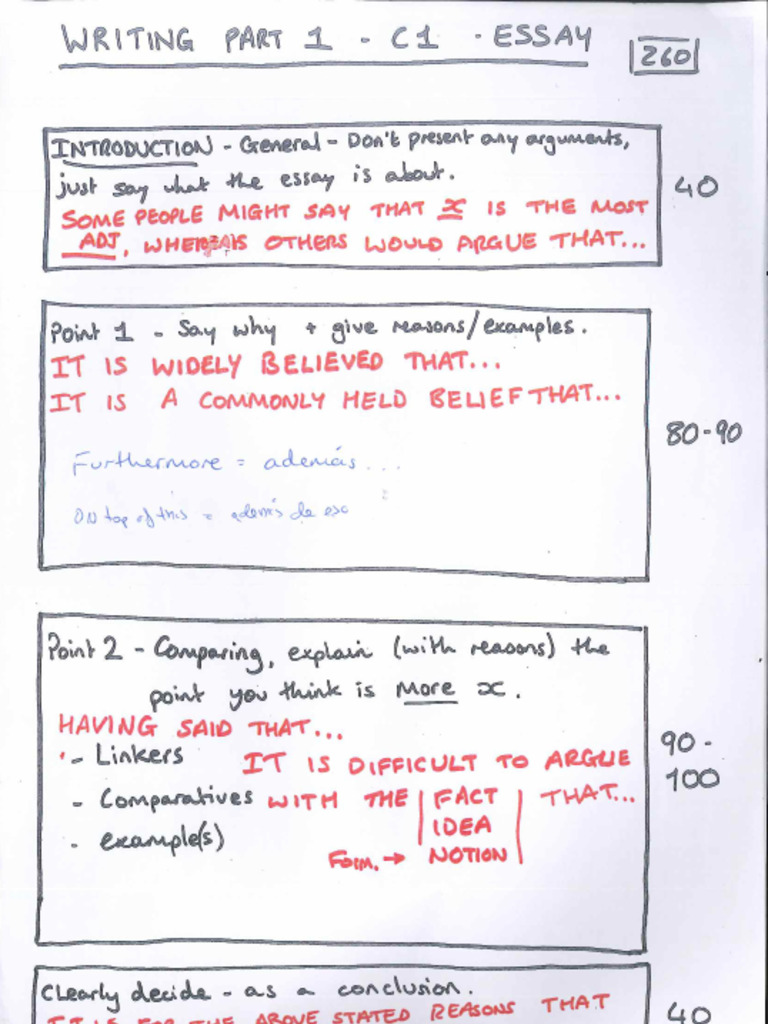 WRITING PART 1 - C1 - ESSAY
260
INTRODUCTION - General - Don't present any arguments,
just say what the essay is about.
40
SOME PEOPLE MIGHT SAY THAT x IS THE MOST
ADJ, WHEREAS OTHERS WOULD ARGUE THAT...
Point 1 - Say why + give reasons/examples.
IT IS WIDELY BELIEVED THAT...
IT IS A COMMONLY HELD BELIEF THAT...
80-90
Furthermore = además...
On top of this = además de eso
Point 2 - Comparing, explain (with reasons) the
point you think is more x.
HAVING SAID THAT...
- Linkers IT IS DIFFICULT TO ARGUE
90-
100
- Comparatives WITH THE | FACT | THAT...
IDEA
- example(s)
Form. → NOTION
Clearly decide - as a conclusion.
IT IS FOR THE ABOVE STATED REASONS THAT
40